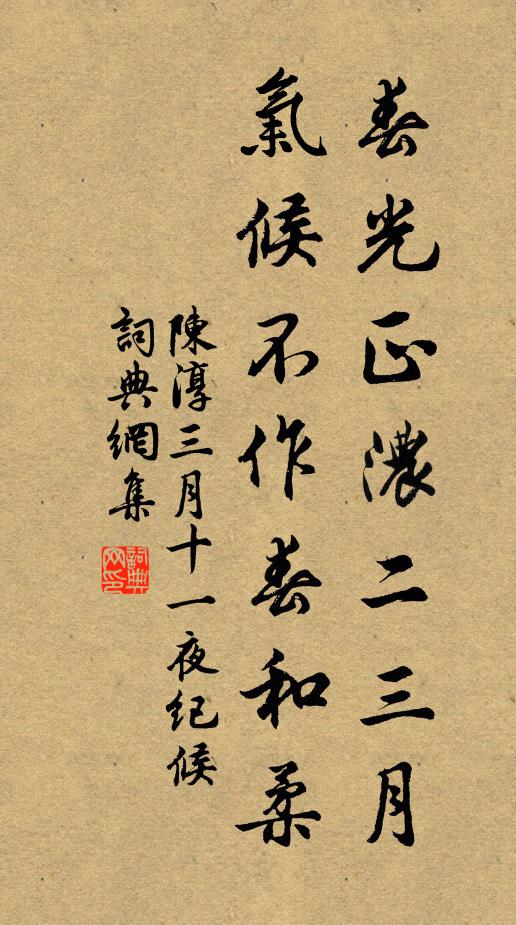 春光正濃二三月
氣候不作春和柔
陳淳三月十一夜纪候
詞典網集
詞典
网印